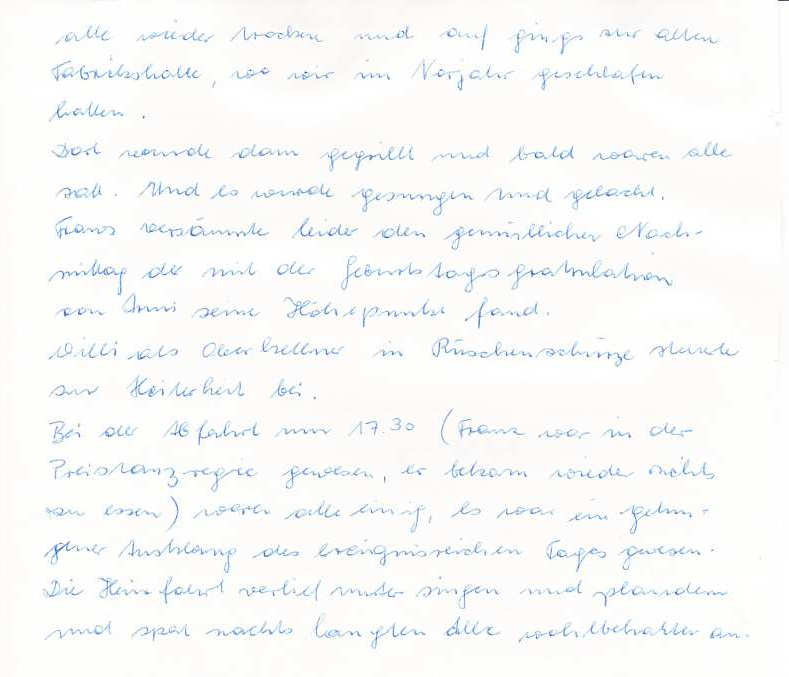 alle wieder trocken und auf gings zur alten
Fabrikshalle, wo wir im Vorjahr geschlafen
hatten.
Dort wurde dann gegrillt und bald waren alle
satt. Und es wurde gesungen und gelacht.
Franz versäumte leider den gemütlichen Nach-
mittag der mit der Geburtstagsgratulation
von Anni seine Höhepunkt fand.
Willi als Oberkellner in Rüschenschürze
zur Heiterkeit bei.
Bei der Abfahrt um 17.30 (Franz war in der
Preistanzregie gewesen, er bekam wieder nichts
zu essen) waren alle einig, es war ein gelun-
gener Ausklang des ereignisreichen Tages gewesen.
Die Heimfahrt verlief unter singen und plaudern
und spät nachts langten alle wohlbehalten an.